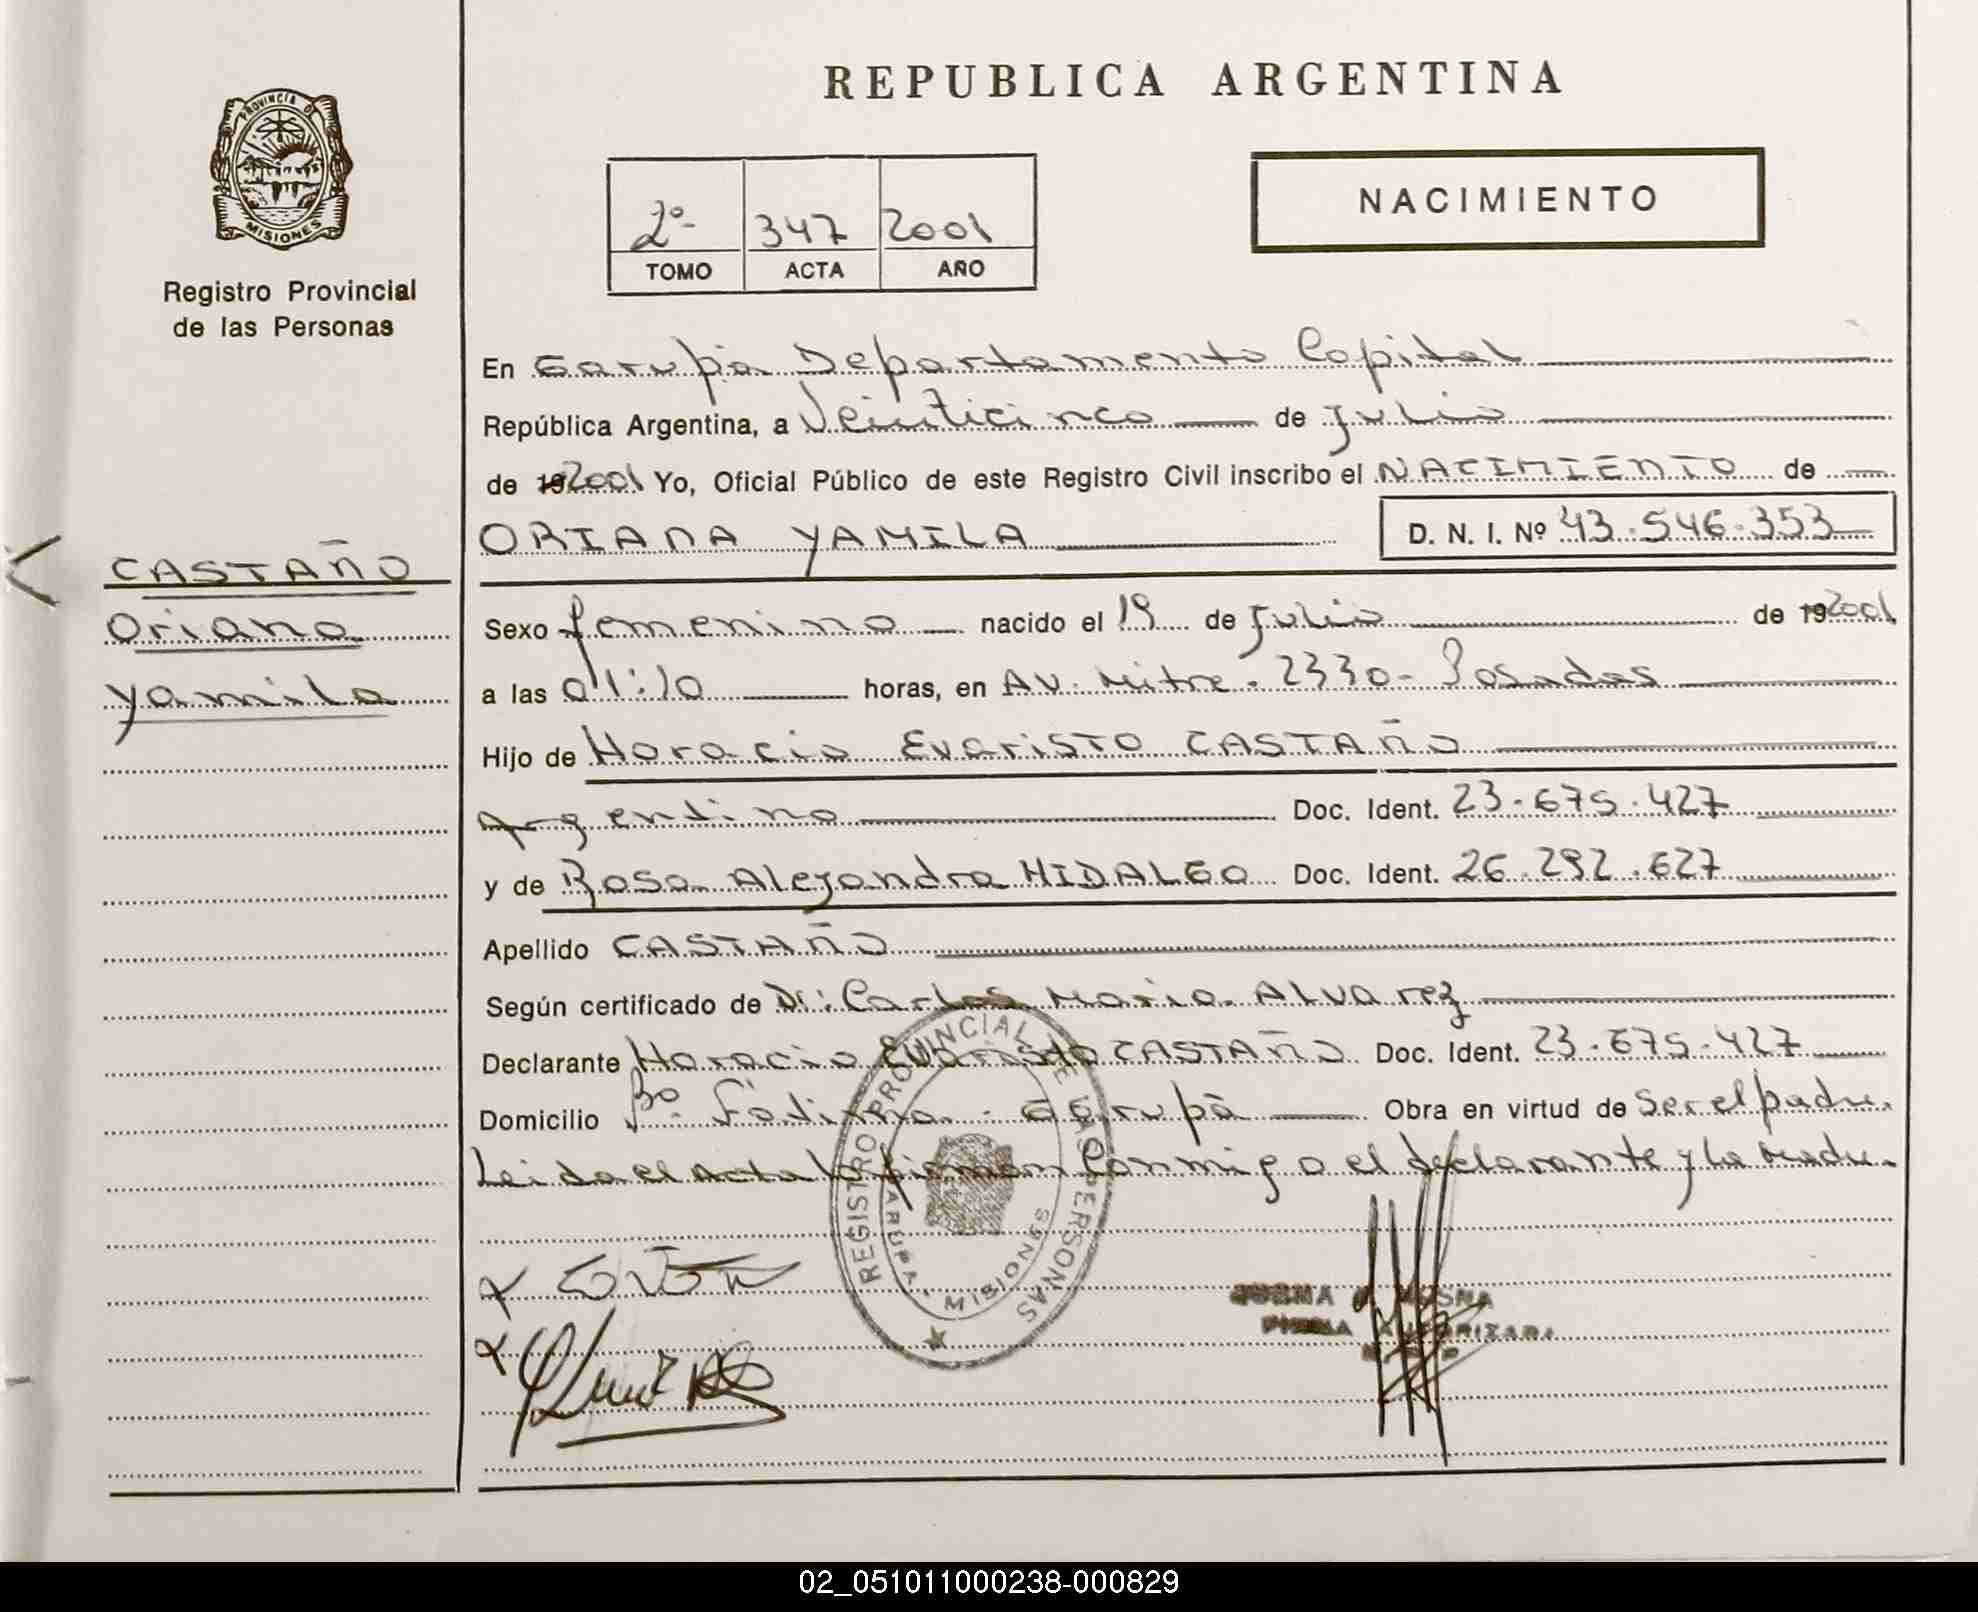 REPUBLICA ARGENTINA
PROVINCIA DE
MISIONES
Registro Provincial
de las Personas
2º 347 2001
TOMO ACTA AÑO
NACIMIENTO
En Garupá Departamento Capital
República Argentina, a Veinticinco de Julio
de 19 2001 Yo, Oficial Público de este Registro Civil inscribo el NACIMIENTO de
ORIANA YAMILA D. N. I. Nº 43.546.353
CASTAÑO
Oriana
Yamila
Sexo femenino nacido el 19 de Julio de 19 2001
a las 01:10 horas, en AV. Mitre. 2330- Posadas
Hijo de Horacio Evaristo CASTAÑO
Argentino Doc. Ident. 23.675.427
y de Rosa Alejandra HIDALGO Doc. Ident. 26.292.627
Apellido CASTAÑO
Según certificado de Dr: Carlos Mario Alvarez
Declarante Horacio Evaristo CASTAÑO Doc. Ident. 23.675.427
Domicilio Bº. Fátima - Garupá Obra en virtud de Ser el padre.
Leida el Acta la firman Conmigo el declarante y la Madre.
REGISTRO PROVINCIAL DE LAS PERSONAS
GARUPA - MISIONES
AUTORIZADA
02_051011000238-000829